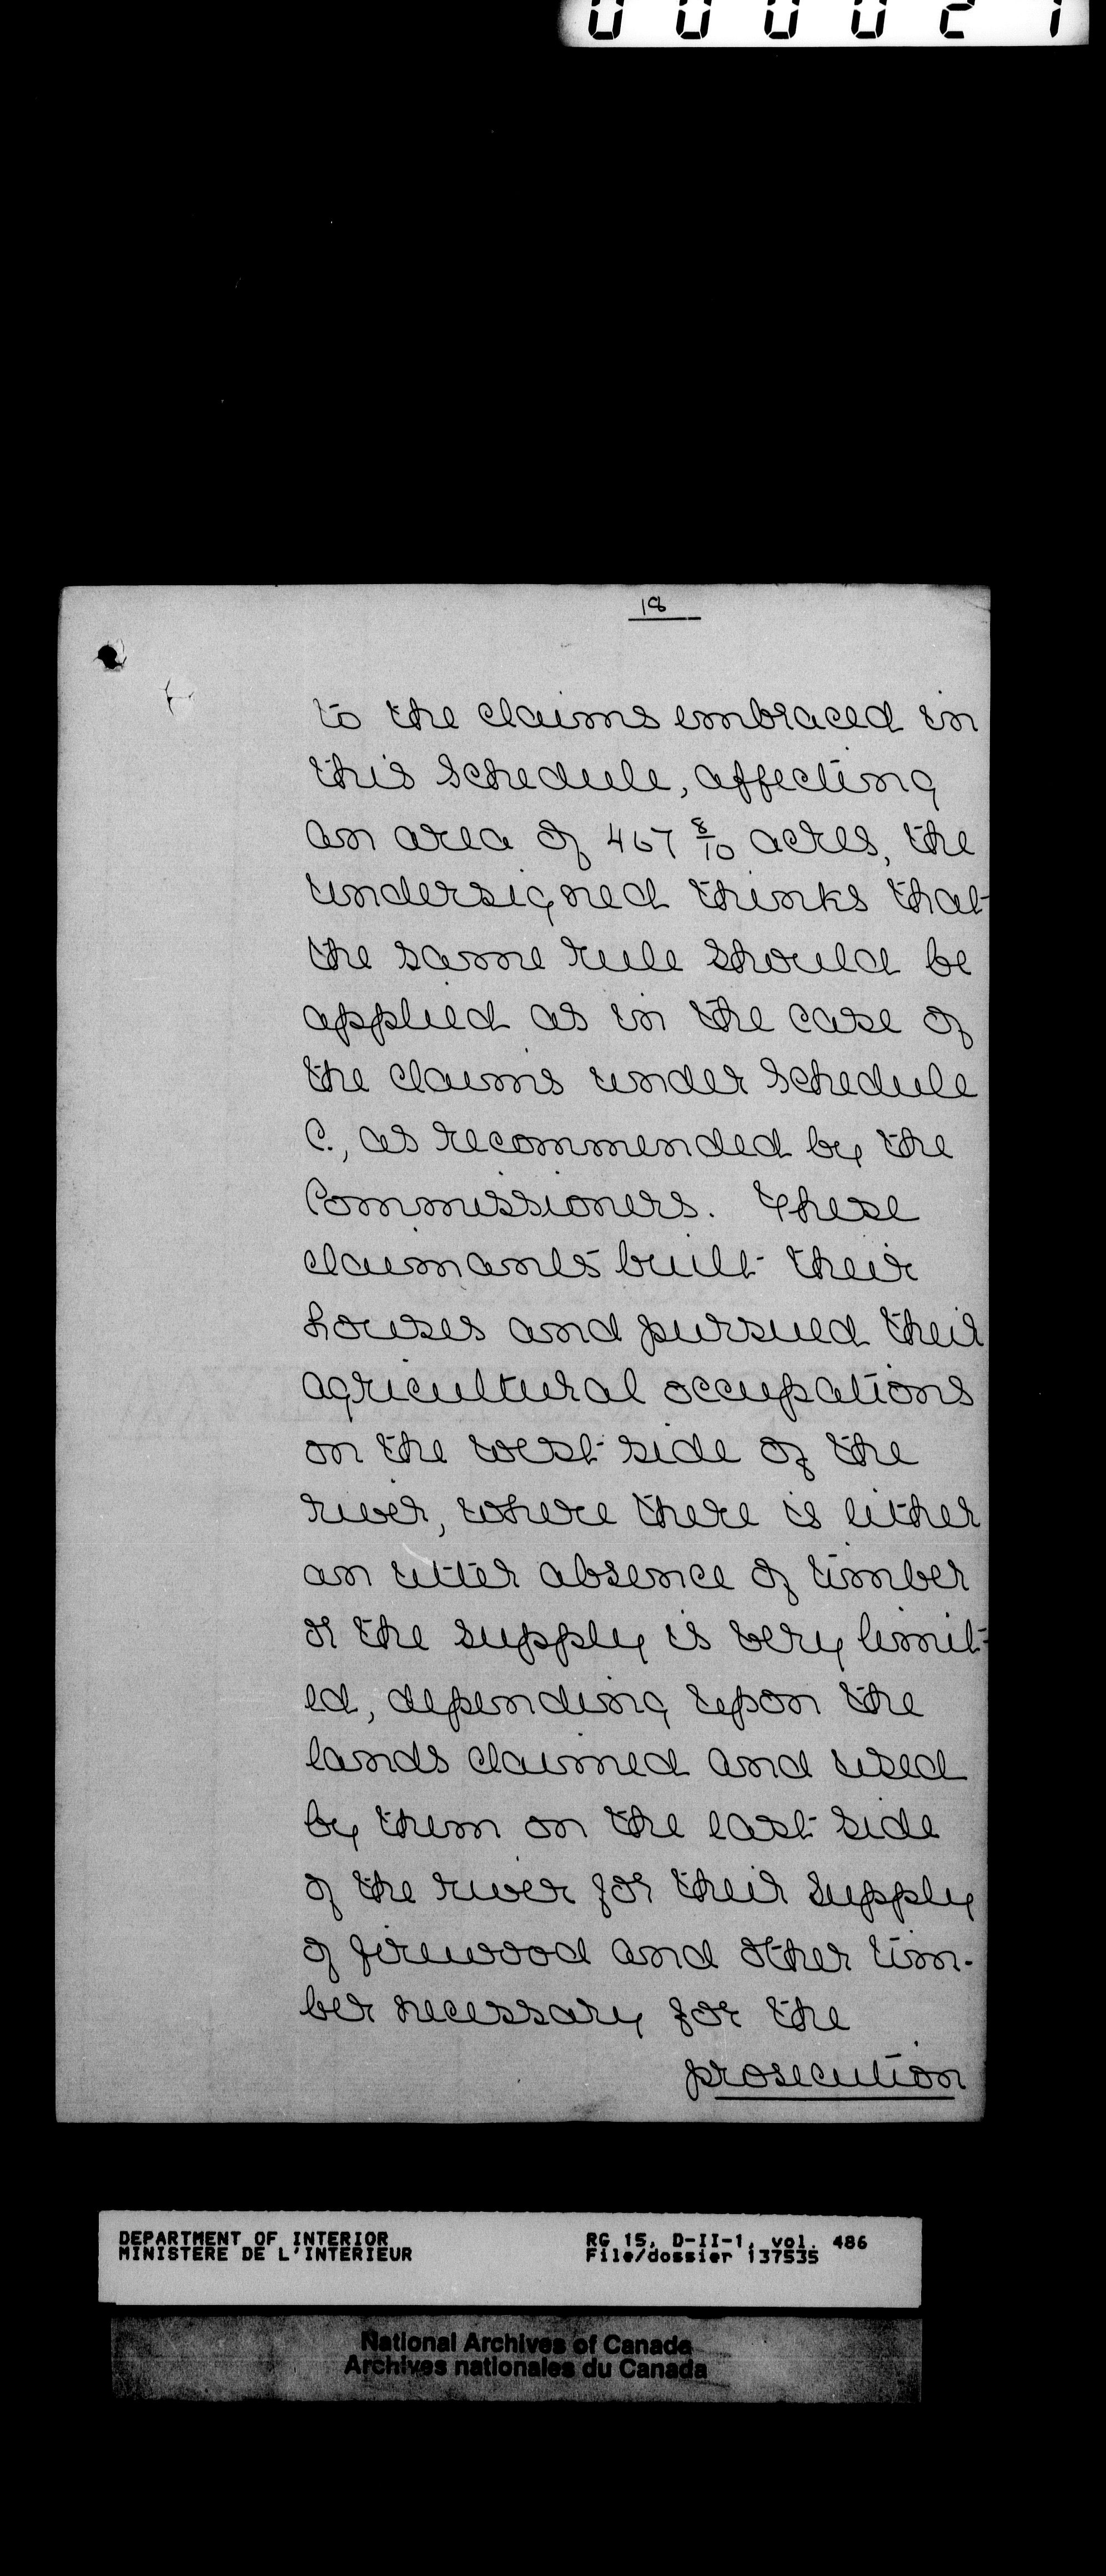 000021
18
to the claims embraced in
this Schedule, affecting
an area of 467 8/10 acres, the
undersigned thinks that
the same rule should be
applied as in the case of
the claims under Schedule
C., as recommended by the
Commissioners. These
claimants built their
houses and pursued their
agricultural occupations
on the west side of the
river, where there is either
an utter absence of timber
or the supply is very limit-
ed, depending upon the
lands claimed and used
by them on the east side
of the river for their supply
of firewood and other tim-
ber necessary for the
prosecution
DEPARTMENT OF INTERIOR
MINISTERE DE L'INTERIEUR
RG 15, D-II-1, vol. 486
File/dossier 137535
National Archives of Canada
Archives nationales du Canada